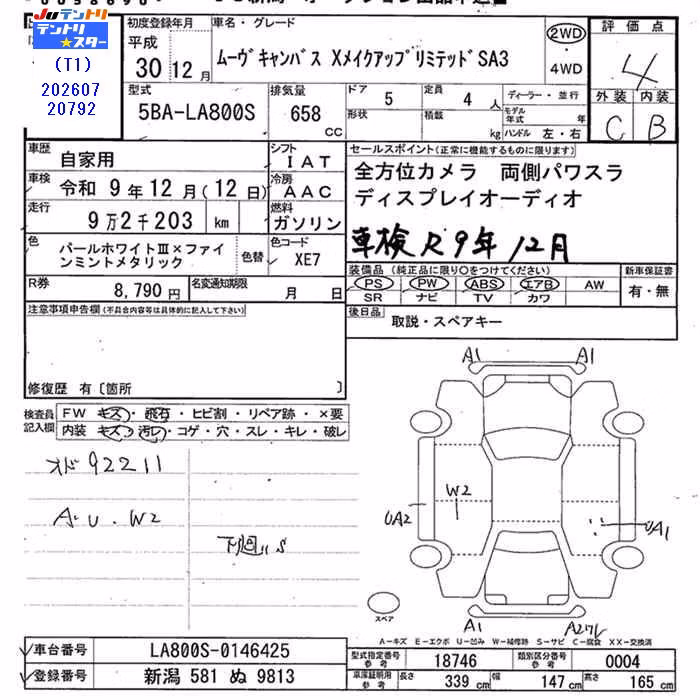 JUテントリ
テントリ★スター
(T1)
202607
20792
初度登録年月
平成
30年12月
車名・グレード
ムーヴキャンバス XメイクアップリミテッドSA3
2WD
・
4WD
評価点
4
外装 内装
C B
型式
5BA-LA800S
排気量
658
CC
ドア
5
形状
定員
4人
積載
kg
ディーラー・並行
モデル年式 年
ハンドル 左・右
車歴
自家用
シフト
IAT
車検
令和 9年12月(12日)
冷房
AAC
走行
9万2千203 km
燃料
ガソリン
色
パールホワイトⅢ×ファインミントメタリック
色替
色コード
XE7
R券
8,790円
名変通知期限
月 日
セールスポイント(正常に機能するものに限ります)
全方位カメラ 両側パワスラ
ディスプレイオーディオ
車検R9年12月
装備品(純正品に限り○をつけてください)
PS PW ABS エアB AW
SR ナビ TV カワ
新車保証書
有・無
後日品
取説・スペアキー
注意事項申告欄(不具合内容等は具体的に記入して下さい)
修復歴 有〔箇所 〕
検査員記入欄
FW キズ・飛石・ヒビ割・リペア跡・×要
内装 キズ・汚れ・コゲ・穴・スレ・キレ・破レ
オド92211
A・U・W2
下廻りS
A1 A1
W2
UA2
UA1
A1
スペア
A-キズ E-エクボ U-凹み W-補修跡 S-サビ C-腐食 XX-交換済
車台番号
LA800S-0146425
登録番号
新潟 581 ぬ 9813
型式指定番号
参考
18746
類別区分番号
参考
0004
車庫証明用
参考
長さ
339 cm
幅
147 cm
高さ
165 cm